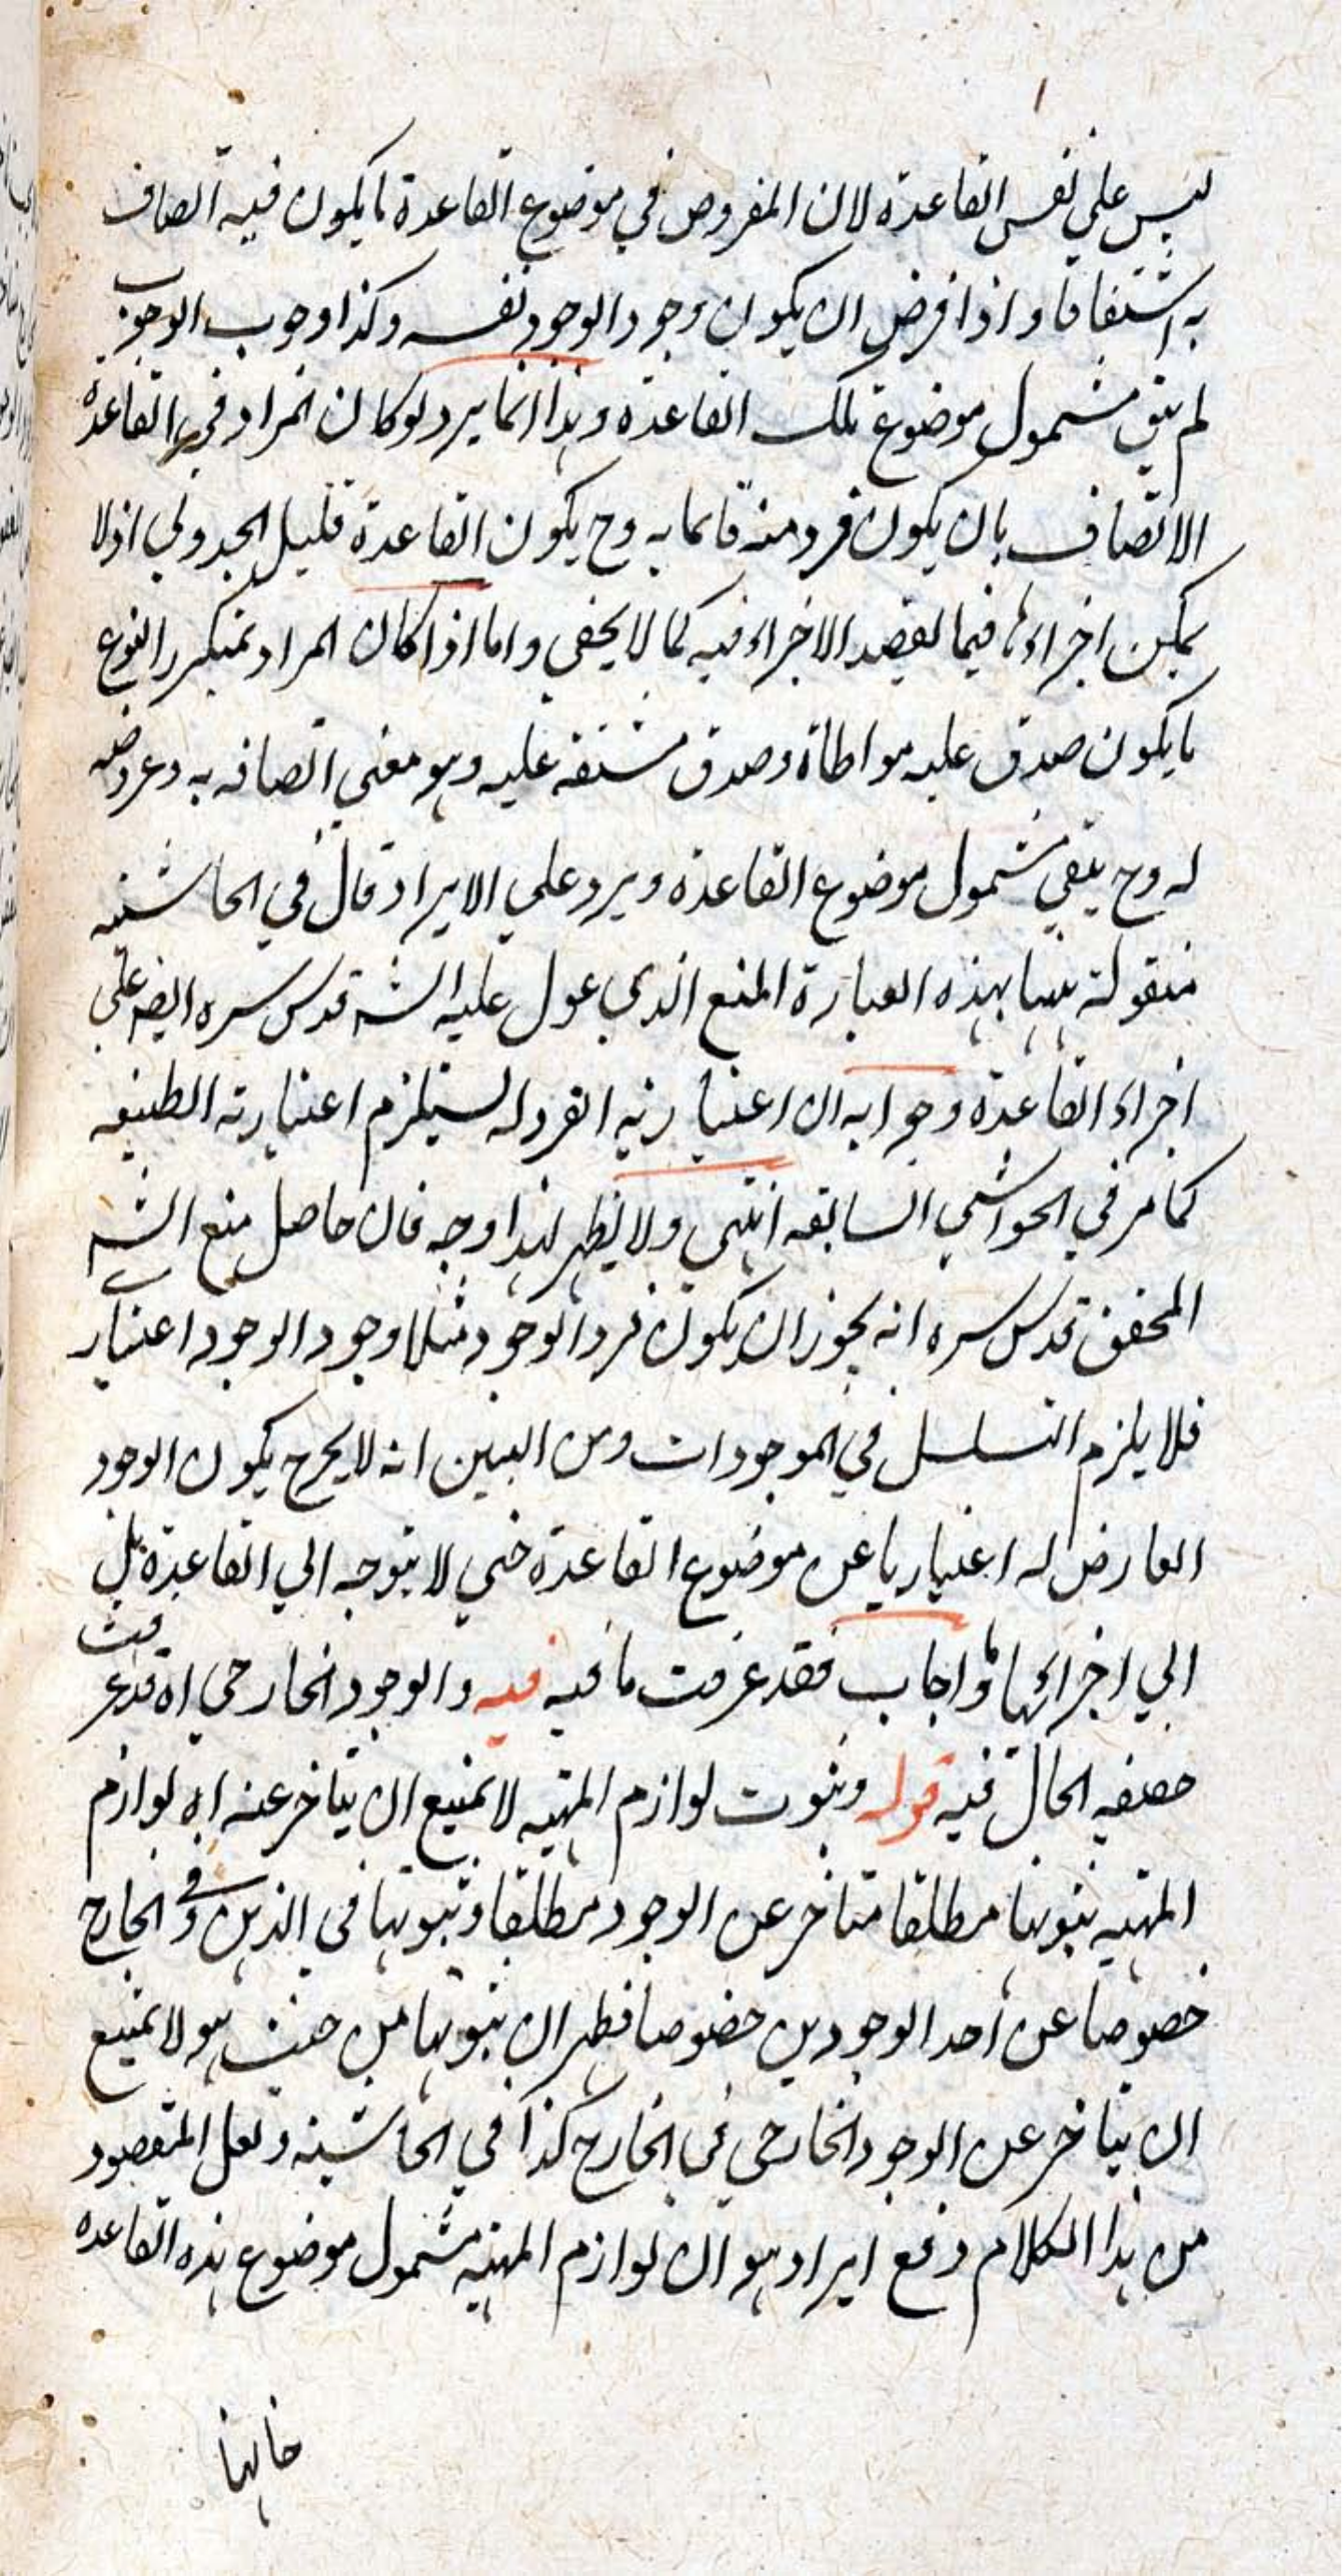 ليس على نفس القاعدة لان المفروض في موضوع القاعدة ما يكون فيه اتصاف
به اشتقاقا واذا فرض ان يكون وجود الوجود نفسه وكذا وجوب الوجوب
لم يبق مشمول موضوع تلك القاعدة وهذا انما يرد لو كان المراد في القاعدة
الاتصاف بان يكون فرد منه قائما به وح يكون القاعدة قليل الجدوى اذ لا
يمكن اجراءها فيما يقصد الاجراء فيه كما لا يخفى واما اذا كان المراد بمتكرر النوع
ما يكون صدق عليه مواطاة وصدق مشتقه عليه وهو معنى اتصافه به وعروضه
له وح يبقى مشمول موضوع القاعدة ويرد على الايراد قال في الحاشية
منقولة هنا بهذه العبارة المنع الذي عول عليه الشه قدس سره ايضه على
اجراء القاعدة وجوابه ان اعتبارية الفرد له يستلزم اعتبارية الطبيعه
كما مر في الحواشي السابقه انتهى ولا يظهر لهذا وجه فان حاصل منع الشه
المحقق قدس سره انه يجوز ان يكون فرد الوجود مثلا وجود الوجود اعتبار
فلا يلزم التسلسل في الموجودات ومن البين انه لا يخرج بكون الوجود
العارض له اعتباريا عن موضوع القاعدة حتى لا يتوجه الى القاعدة بل
الى اجرائها وما اجاب فقد عرفت ما فيه فيه والوجود الخارجي اه قد عرفت
حقيقه الحال فيه قوله وثبوت لوازم المهيه لا يمتنع ان يتاخر عنه اه لوازم
المهيه ثبوتها مطلقا متاخر عن الوجود مطلقا وثبوتها في الذهن وفي الخارج
خصوصا عن احد الوجودين خصوصا فظهر ان ثبوتها من حيث هو لا يمتنع
ان يتاخر عن الوجود الخارجي في الخارج كذا في الحاشيه ولعل المقصود
من هذا الكلام دفع ايراد هو ان لوازم المهيه مشمول موضوع هذه القاعده